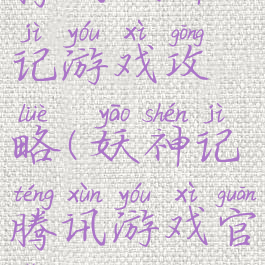 jì yóu xì gōng
记游戏攻
lüè yāo shén jì
略(妖神记
téng xùn yóu xì guān
腾讯游戏官